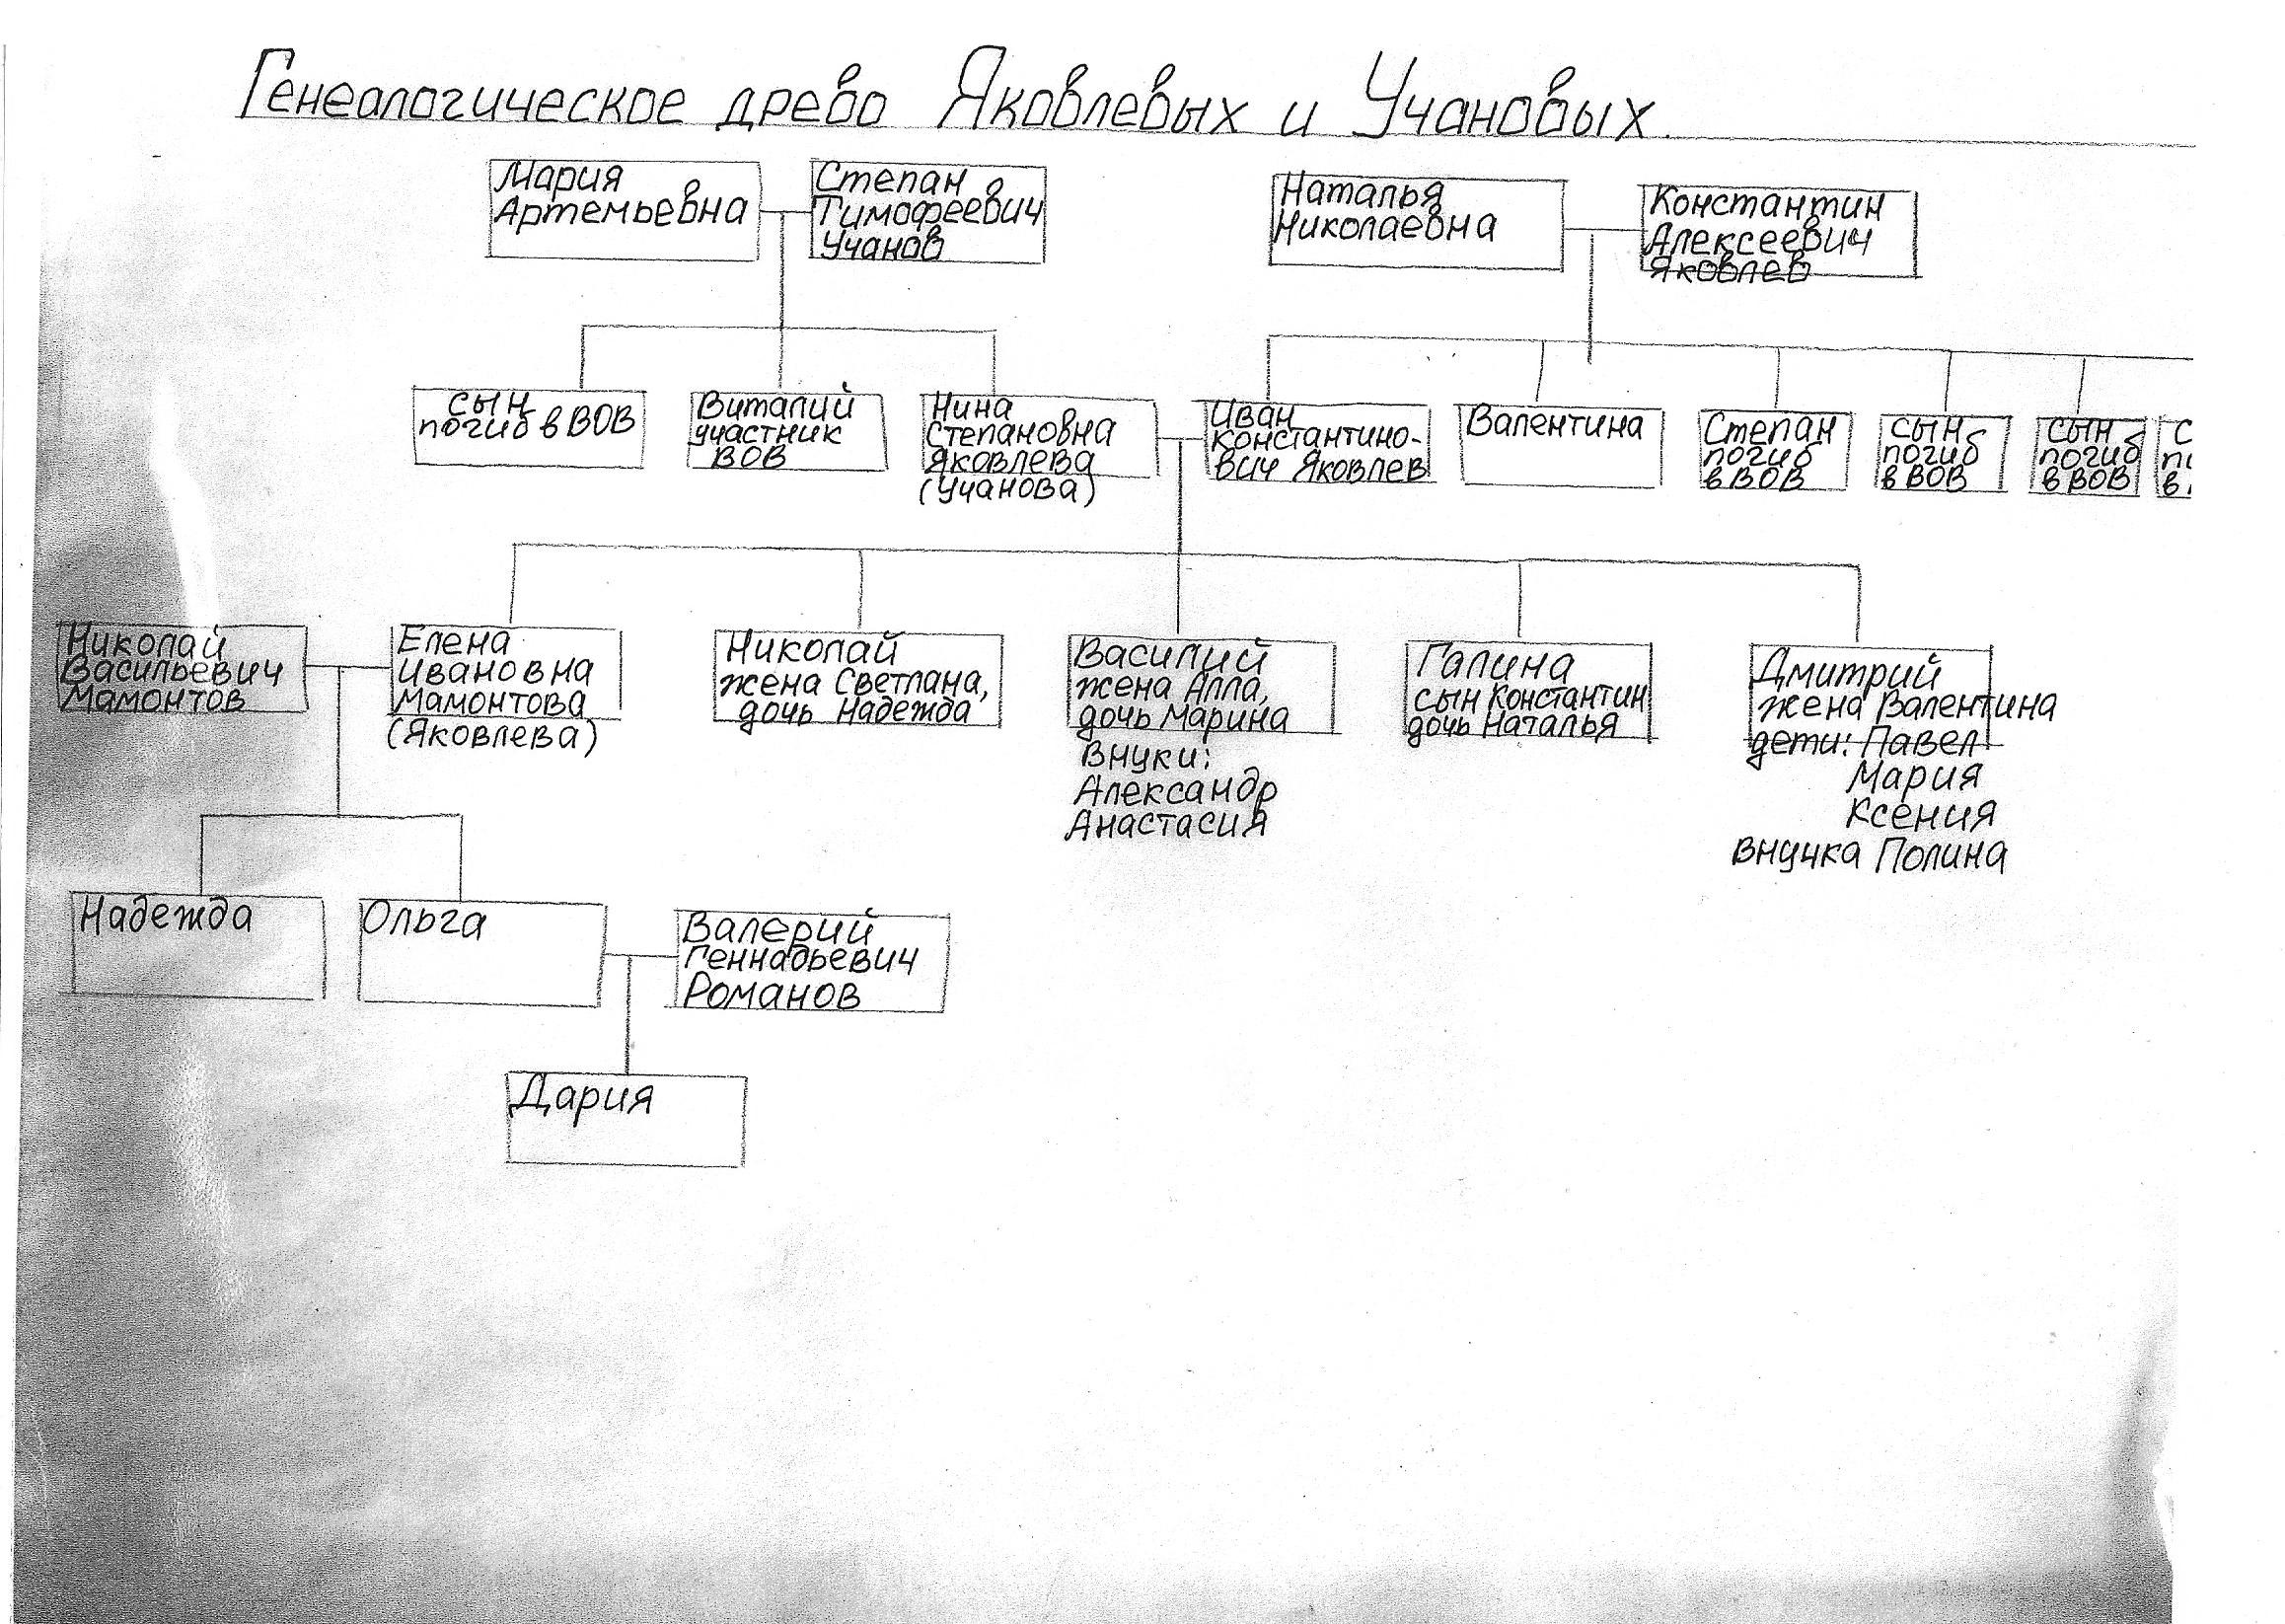 Генеалогическое древо Яковлевых и Учановых.
Мария
Артемьевна
Степан
Тимофеевич
Учанов
Наталья
Николаевна
Константин
Алексеевич
Яковлев
сын
погиб в ВОВ
Виталий
участник
ВОВ
Нина
Степановна
Яковлева
(Учанова)
Иван
Константино-
вич Яковлев
Валентина
Степан
погиб
в ВОВ
сын
погиб
в ВОВ
сын
погиб
в ВОВ
Николай
Васильевич
Мамонтов
Елена
Ивановна
Мамонтова
(Яковлева)
Николай
жена Светлана,
дочь Надежда
Василий
жена Алла,
дочь Марина
Внуки:
Александр
Анастасия
Галина
сын Константин
дочь Наталья
Дмитрий
жена Валентина
дети: Павел
Мария
Ксения
Внучка Полина
Надежда
Ольга
Валерий
Геннадьевич
Романов
Дария